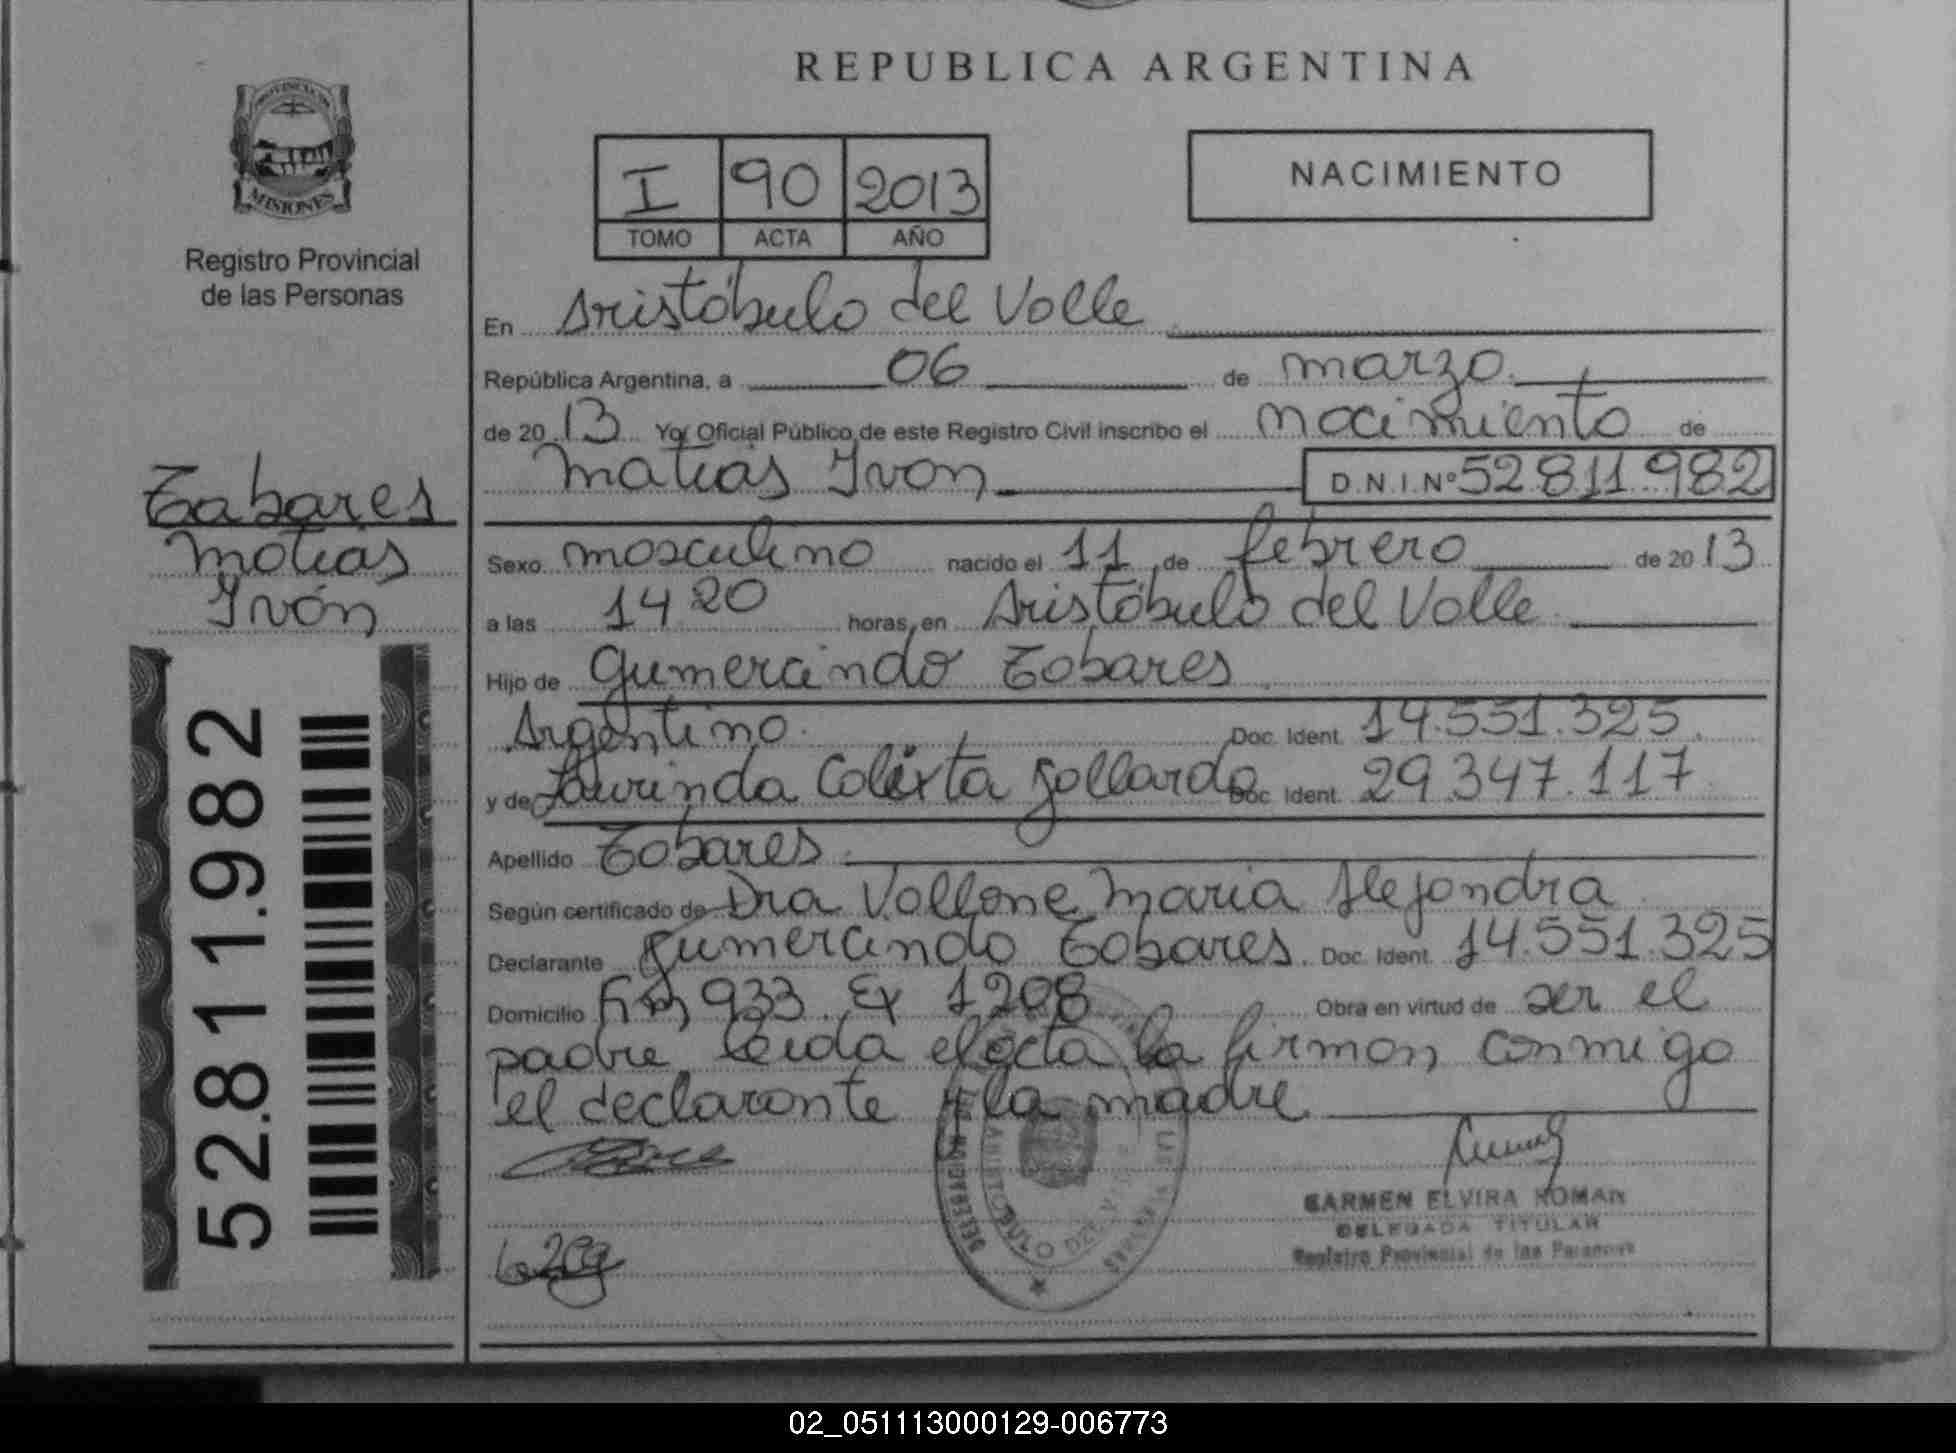 REPUBLICA ARGENTINA
PROVINCIA DE
MISIONES
Registro Provincial
de las Personas
I 90 2013
TOMO ACTA AÑO
NACIMIENTO
En Aristóbulo del Valle
República Argentina, a 06 de marzo
de 2013 Yo, Oficial Público de este Registro Civil inscribo el nacimiento de
Matías Ivan D.N.I.Nº 52.811.982
Tabares
Matías
Iván
52.811.982
Sexo masculino nacido el 11 de febrero de 2013
a las 14 20 horas, en Aristóbulo del Valle
Hijo de Gumercindo Tabares
Argentino. Doc. Ident. 14.551.325
y de Laurinda Calixta Gallardo Doc. Ident. 29.347.117
Apellido Tabares
Según certificado de Dra Vallone Maria Alejandra
Declarante Gumercindo Tabares. Doc. Ident. 14.551.325
Domicilio 933 Ex 1208 Obra en virtud de ser el
padre, leida el acta la firman conmigo
el declarante y la madre
CARMEN ELVIRA ROMAN
DELEGADA TITULAR
Registro Provincial de las Personas
02_051113000129-006773